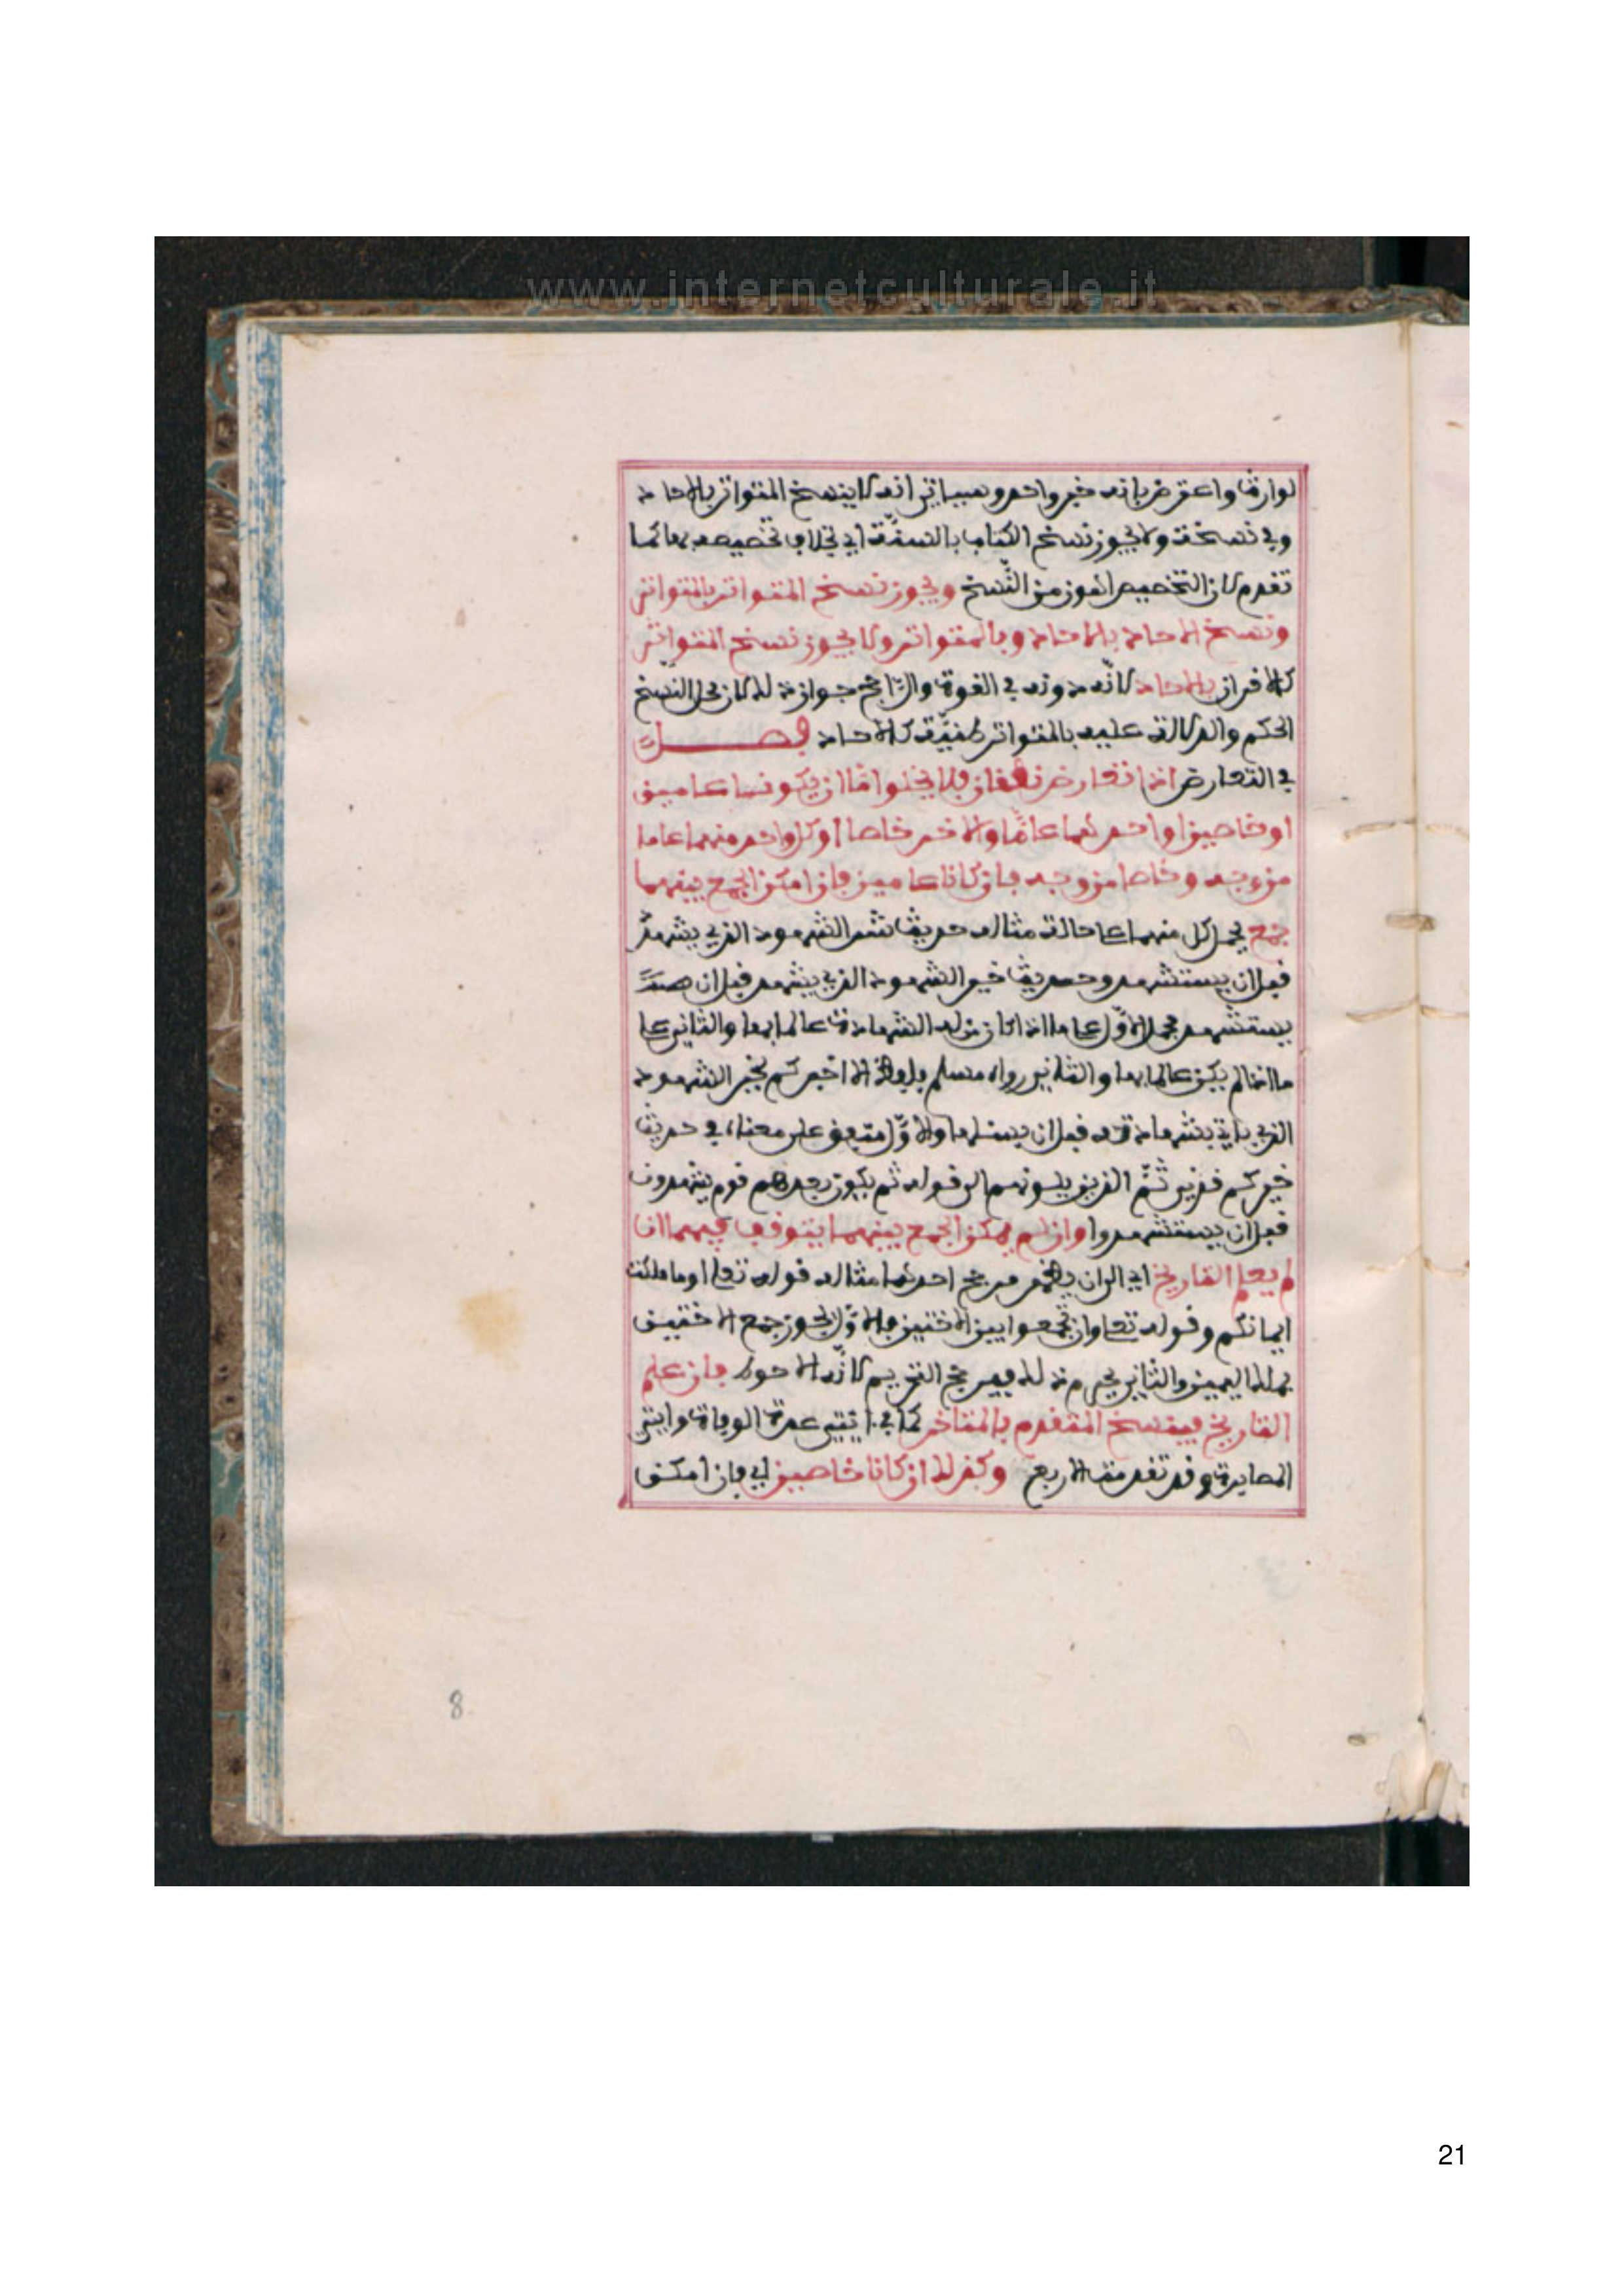 www.internetculturale.it
لوارث واعترض بانه خبر واحد وسياتي انه لا ينسخ المتواتر بالاحاد
وفي نسخة ولا يجوز نسخ الكتاب بالسنّة اي بخلاف تخصيصه بها كما
تقدم لان التخصيص اهون من النّسخ ويجوز نسخ المتواتر بالمتواتر
ونسخ الاحاد بالاحاد وبالمتواتر ولا يجوز نسخ المتواتر
كالقران بالاحاد لانّه دونه في القوة والرّاجح جواز ذلك لان محل النّسخ
الحكم والدلالة عليه بالمتواتر ظنيّة كالاحاد فصل
في التعارض اذا تعارض نطقان فلا يخلوا امّا ان يكونا عامين
او خاصين او احدهما عامّا والاخر خاصا او كل واحد منهما عاما
من وجه وخاصا من وجه فان كانا عامين فان امكن الجمع بينهما
جمع بحمل كل منهما على حالة مثاله حديث شر الشهود الذي يشهد
قبل ان يستشهد وحديث خير الشهود الذي يشهد قبل ان
يستشهد فحمل الاوّل على ما اذا كان من له الشهادة عالما بها والثاني على
ما اذا لم يكن عالما بها والثاني رواه مسلم بلفظ الا اخبركم بخير الشهود
الذي ياتي بشهادته قبل ان يسئلها والاوّل متفق على معناه في حديث
خيركم قرني ثمّ الذين يلونهم الى قوله ثم يكون بعدهم قوم يشهدون
قبل ان يستشهدوا وان لم يمكن الجمع بينهما يتوقف فيهما ان
لم يعلم التاريخ اي الى ان يظهر مرجح احدهما مثاله قوله تعلى او ما ملكت
ايمانكم وقوله تعلى وان تجمعوا بين الاختين فالاوّل يجوز جمع الاختين
بملك اليمين والثاني يحرم ذلك فيرجح التحريم لانّه الاحوط فان علم
التاريخ فينسخ المتقدم بالمتاخر كما في ايتي عدة الوفاة وايتي
المصابرة وقد تقدمت الاربع وكذلك ان كانا خاصين اي فان امكن
8
21